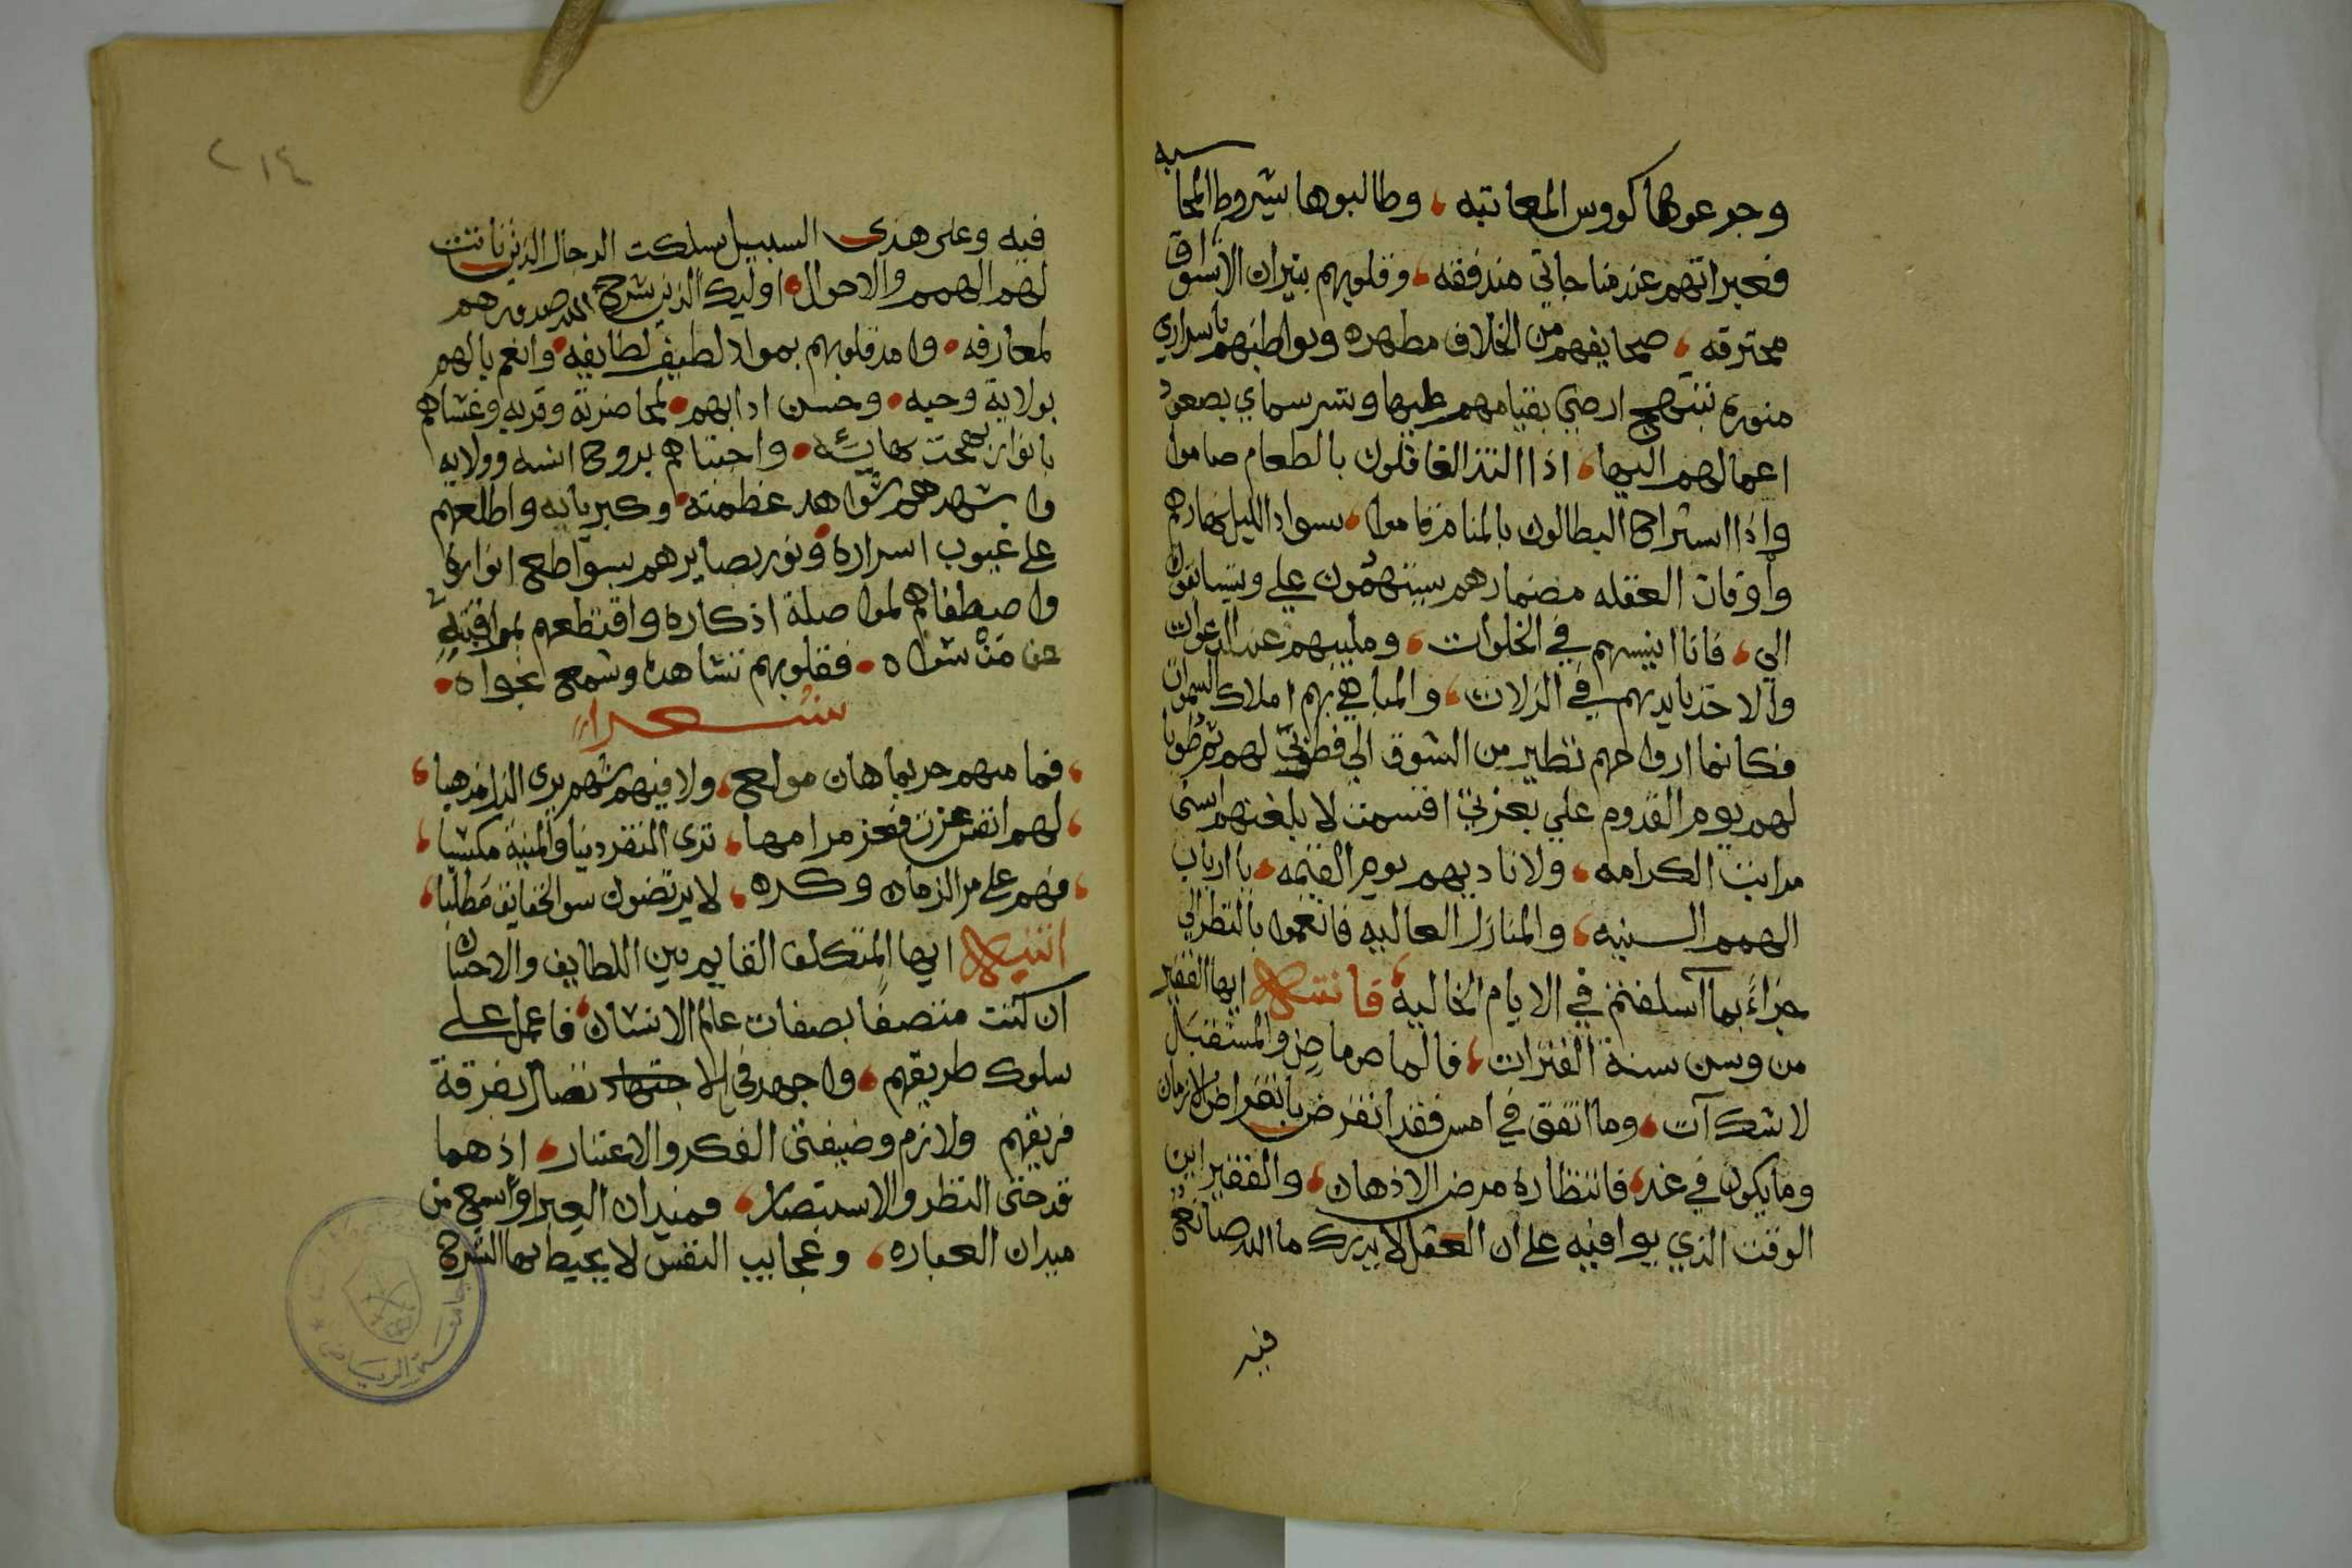 وجرعوها كووس المعاتبه، وطالبوها بشروط المحاسبه
فعبراتهم عند مناجاتي مندفقه، وقلوبهم بنيران الاشواق
محترقه، صحايفهم من الخلاف مطهره وبواطنهم باسراري
منوره تبتهج ارضي بقيامهم عليها وتسر سماي بصعود
اعمالهم اليها، اذا التذ الغافلون بالطعام صاموا
واذا استراح البطالون بالمنام قاموا، سواد الليل نهارهم
واوقات الغفله مضمارهم يستهمون علي ويتسابقون
الي، فانا انيسهم في الخلوات، ومليبهم عند الدعوات
والاخذ بايديهم في الزلات، والمباهي بهم املاك السموات
فكانما ارواحهم تطير من الشوق الي فطوبي لهم ثم طوبا
لهم يوم القدوم علي بعزتي اقسمت لا بلغنهم اسنى
مراتب الكرامه، ولاناديهم يوم القيمه، يا ارباب
الهمم السنيه، والمنازل العاليه فانعموا بالنظر الي
جزاءً بما اسلفتم في الايام الخاليه، فانتبه ايها الفقير
من وسن سنة الفترات، فالماضي ماض والمستقبل
لا شك آت، وما اتفق في امس فقد انقرض بانقراض الازمان
وما يكون في غد، فانتظاره مرض الاذهان، والفقير ابن
الوقت الذي يوافيه على ان العقل لا يدرك ما الله صانع
فيه
٢١٤
فيه وعلى هذى السبيل سلكت الرجال الذين ثابتت
لهم الهمم والاحوال، اوليك الذين شرح الله صدورهم
لمعارفه، وامد قلوبهم بمواد لطيف لطايفه، وانعم بالهم
بولاية وحبه، وحسن ادابهم، لمحاضرته وقربه وغشاهم
بانوار بهجت بهائه، واجتباهم بروح انسه وولايه
واشهدهم شواهد عظمته، وكبريايه واطلعهم
على غيوب اسراره ونور بصايرهم بسواطع انواره
واصطفاهم لمواصلة اذكاره واقتطعهم بمراقبته
عن من سواه، فقلوبهم تشاهد وتسمع نجواه،
شعرا
، فما منهم حر بماهان مولع، ولا فيهم شهم يرى الذل مذهبا،
، لهم انفس عزت فعز مرامها، ترى الفقر دنيا والمنية مكسبا،
، فهم على مر الزمان وكره، لا يرتضون سوا الحقايق مطلبا،
انتبه ايها المتكلف القايم بين اللطايف والاحسان
ان كنت متصفا بصفات عالم الانسان، فاعمل على
سلوك طريقهم، واجهد في الاجتهاد تصال بفرقة
فريقهم ولازم وضيفتي الفكر والاعتبار، اذ هما
قدحتى النظر والاستبصار، فميدان العبر اوسع من
ميدان العباره، وعجايب النفس لا يحيط بها الشرح
جامعة الرياض